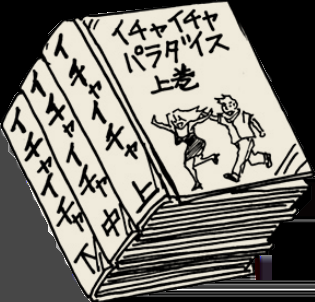 イチャイチャ
パラダイス
上巻
イチャイチャ上
イチャイチャ中
イチャイチャ下